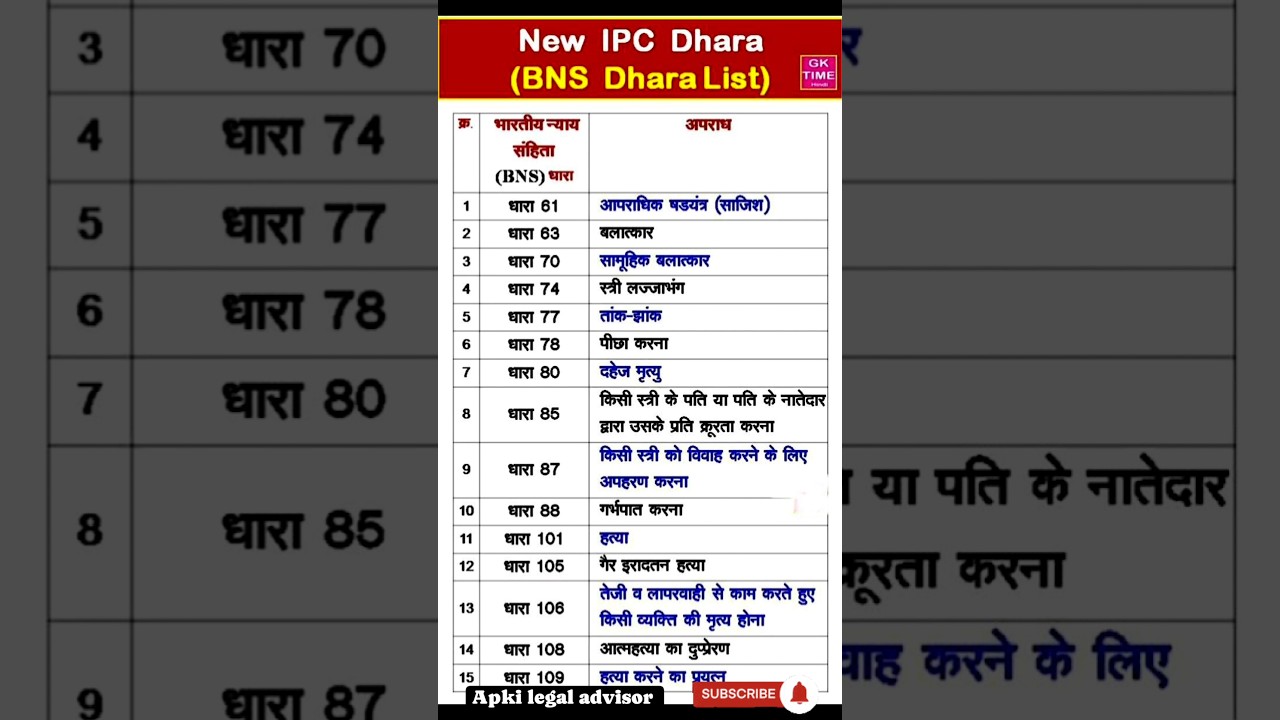 New IPC Dhara
(BNS Dhara List)
GK
TIME
Hindi
क्र. भारतीय न्याय संहिता (BNS) धारा अपराध
1 धारा 61 आपराधिक षडयंत्र (साजिश)
2 धारा 63 बलात्कार
3 धारा 70 सामूहिक बलात्कार
4 धारा 74 स्त्री लज्जाभंग
5 धारा 77 तांक-झांक
6 धारा 78 पीछा करना
7 धारा 80 दहेज मृत्यु
8 धारा 85 किसी स्त्री के पति या पति के नातेदार
द्वारा उसके प्रति क्रूरता करना
9 धारा 87 किसी स्त्री को विवाह करने के लिए
अपहरण करना
10 धारा 88 गर्भपात करना
11 धारा 101 हत्या
12 धारा 105 गैर इरादतन हत्या
13 धारा 106 तेजी व लापरवाही से काम करते हुए
किसी व्यक्ति की मृत्य होना
14 धारा 108 आत्महत्या का दुष्प्रेरण
15 धारा 109 हत्या करने का प्रयत्न
Apki legal advisor
SUBSCRIBE
3 धारा 70
4 धारा 74
5 धारा 77
6 धारा 78
7 धारा 80
8 धारा 85
या पति के नातेदार
क्रूरता करना
9 धारा 87
वाह करने के लिए